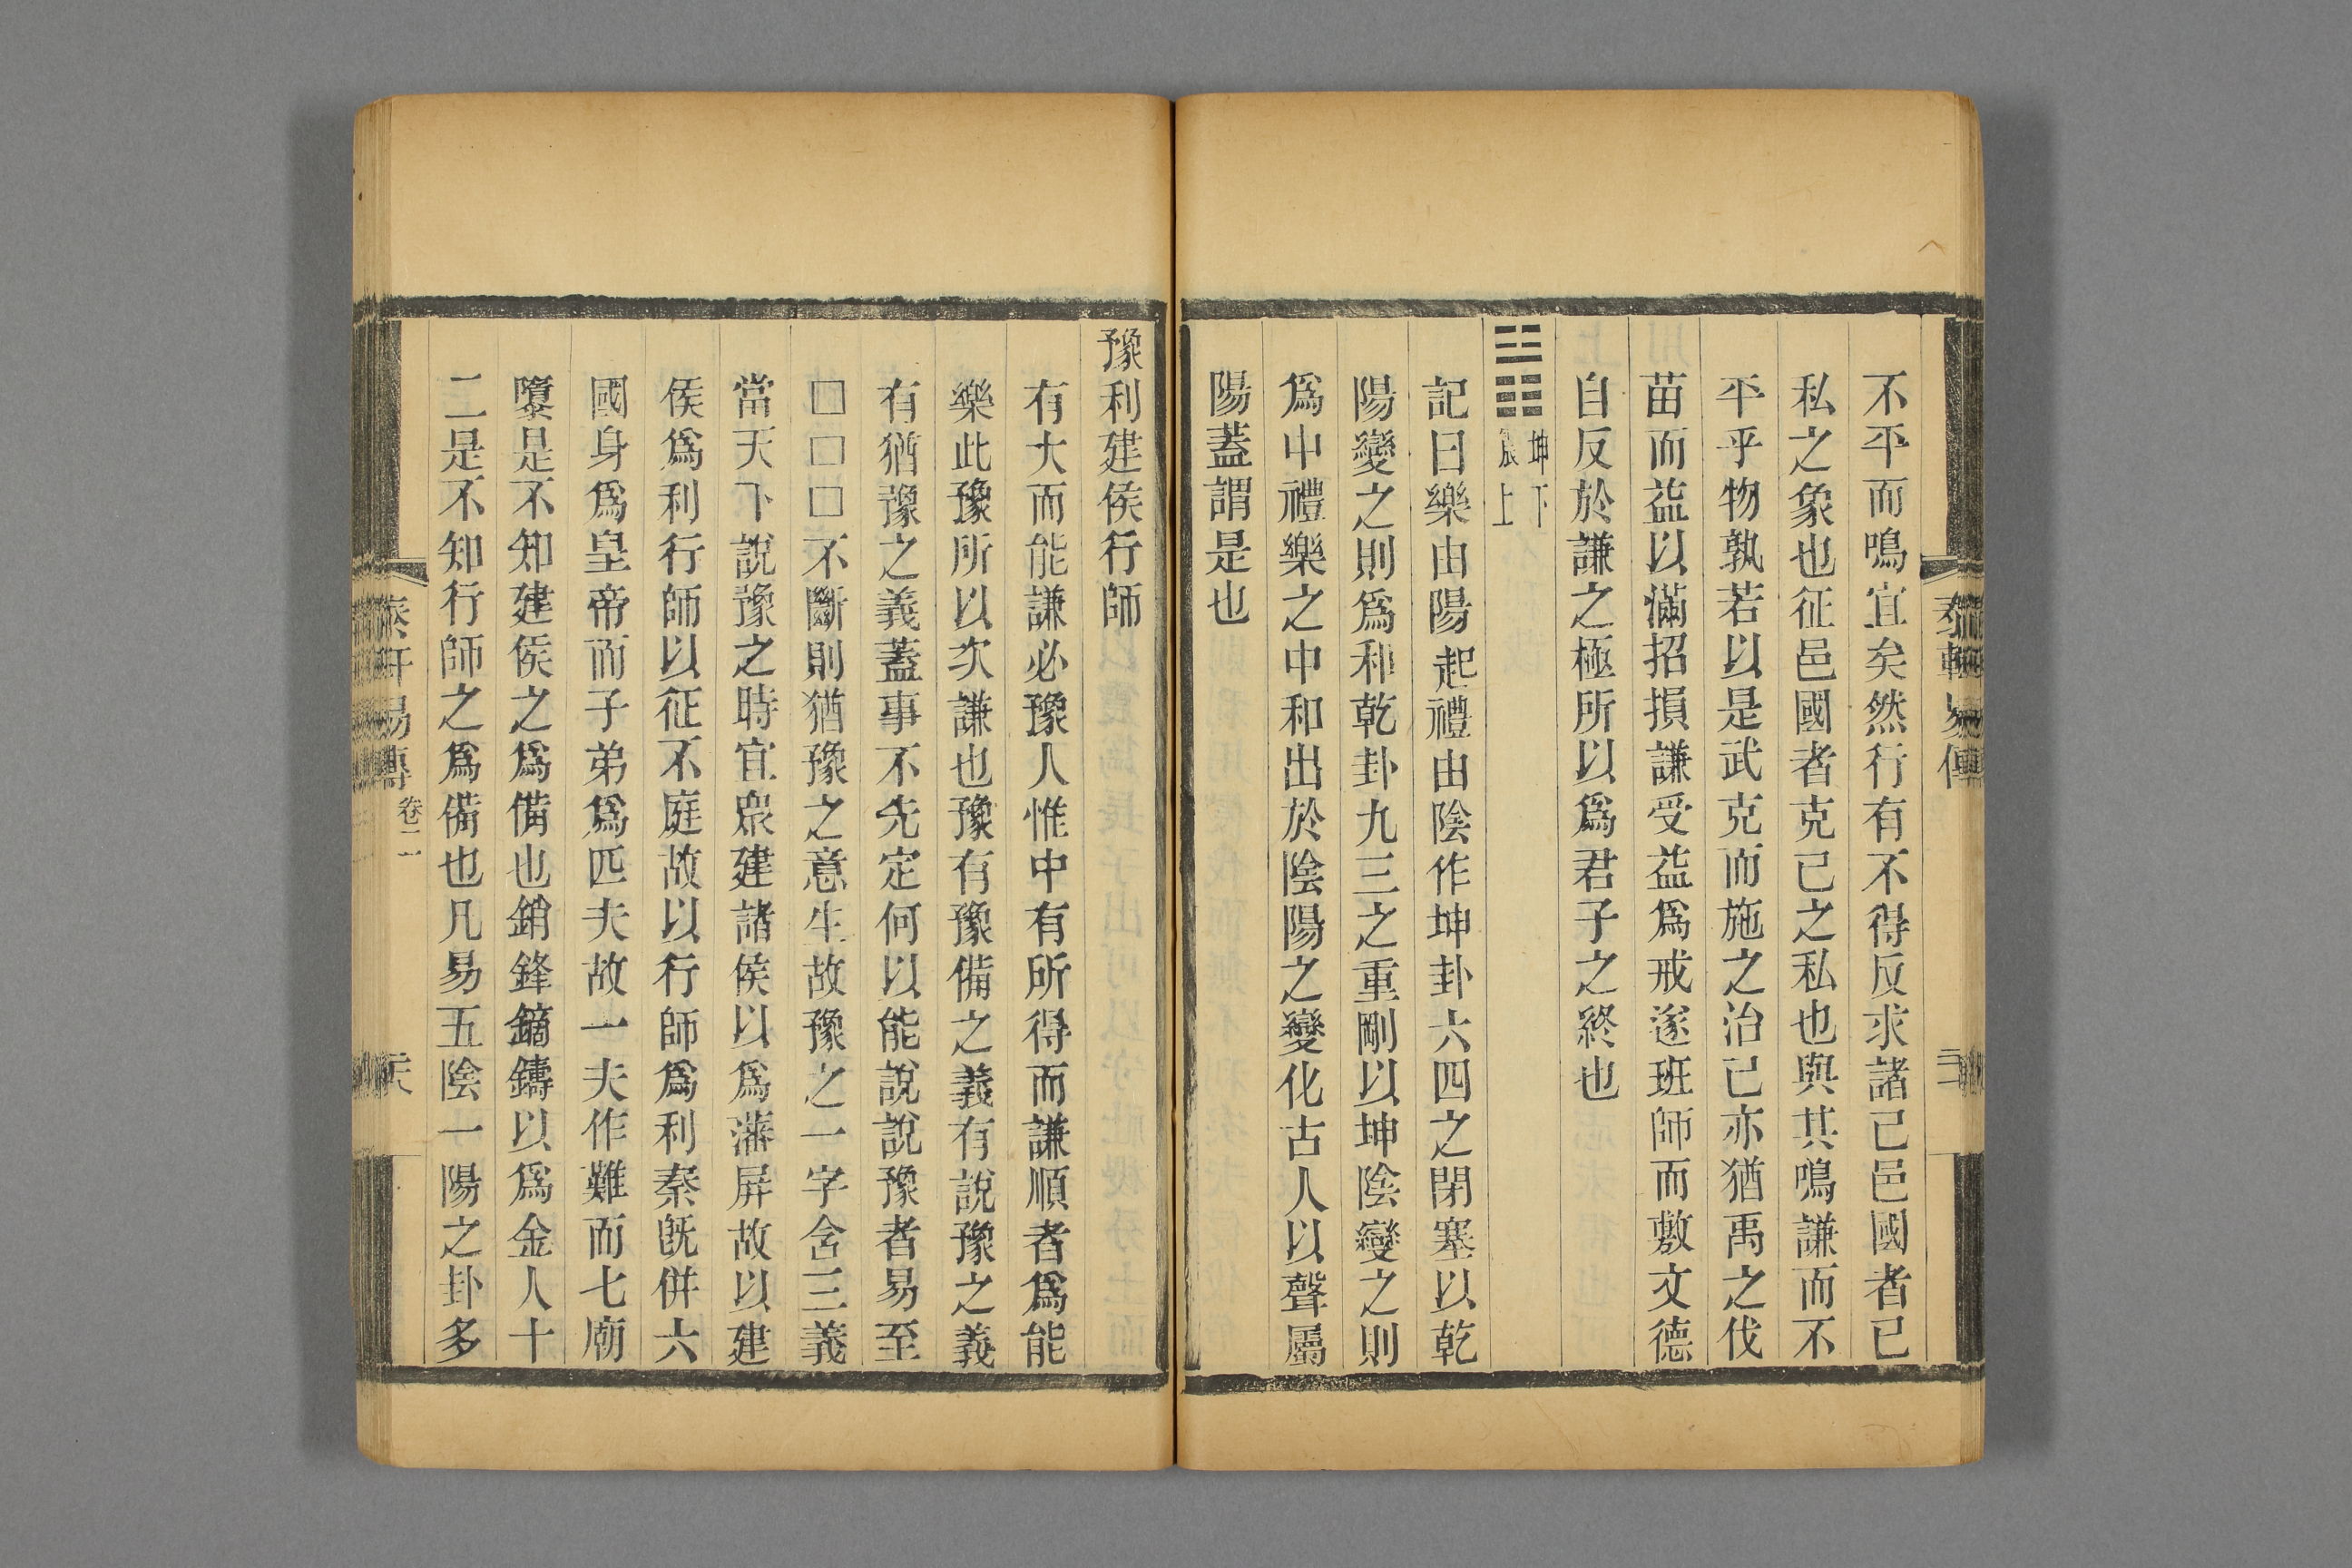 不平而鳴宜矣然行有不得反求諸己邑國者已
私之象也征邑國者克己之私也與其鳴謙而不
平乎物孰若以是武克而施之治己亦猶禹之伐
苗而益以滿招損謙受益為戒遂班師而敷文德
自反於謙之極所以為君子之終也
䷏坤下震上
記曰樂由陽起禮由陰作坤卦六四之閉塞以乾
陽變之則為和乾卦九三之重剛以坤陰變之則
為中禮樂之中和出於陰陽之變化古人以聲屬
陽蓋謂是也
豫利建侯行師
有大而能謙必豫人惟中有所得而謙順者為能
樂此豫所以次謙也豫有豫備之義有說豫之義
有猶豫之義蓋事不先定何以能說說豫者易至
□□□不斷則猶豫之意生故豫之一字含三義
當天下說豫之時宜眾建諸侯以為藩屏故以建
侯為利行師以征不庭故以行師為利秦既併六
國身為皇帝而子弟為匹夫故一夫作難而七廟
隳是不知建侯之為備也銷鋒鏑鑄以為金人十
二是不知行師之為備也凡易五陰一陽之卦多
易傳 卷二